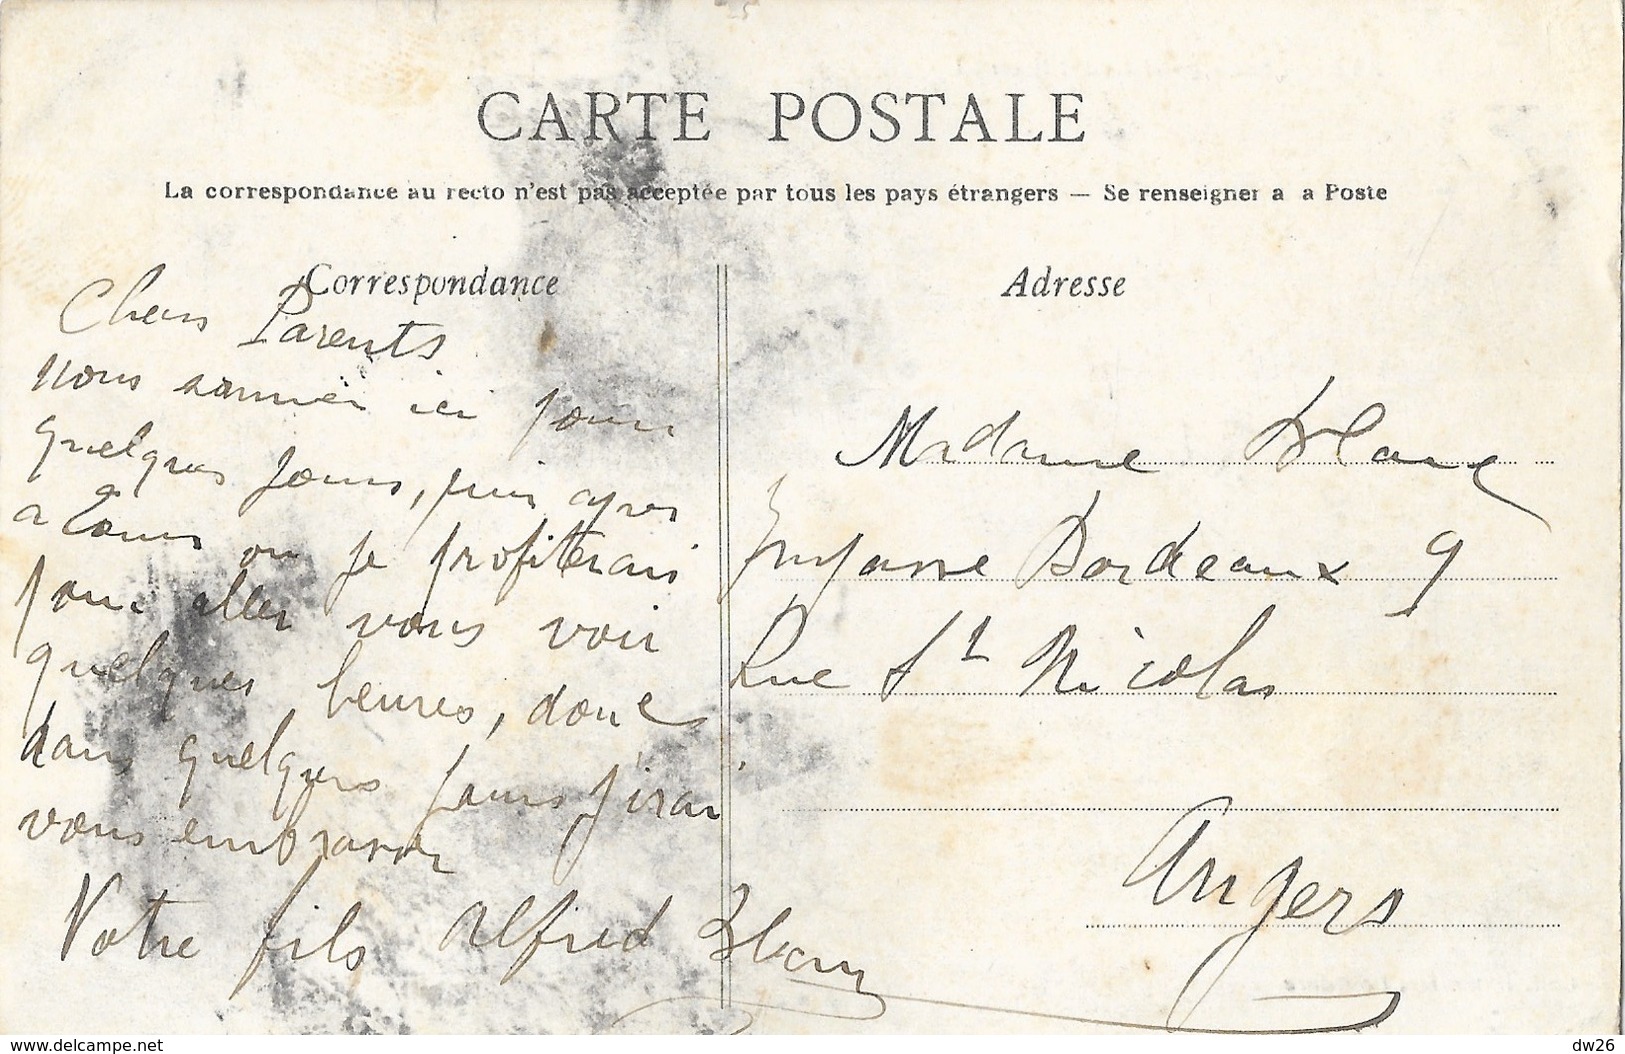 CARTE POSTALE
La correspondance au recto n'est pas acceptée par tous les pays étrangers — Se renseigner a a Poste
Correspondance
Chers Parents
nous sommes ici pour
quelques jours, puis apres
a Tours ou je profiterais
pour aller vous voir
quelques heures, donc
dans quelques jours j'irai
vous embrasser
Votre fils Alfred Blanc
Adresse
Madame Blanc
Bordeaux 9
Rue St Nicolas
Angers
www.delcampe.net
dw26